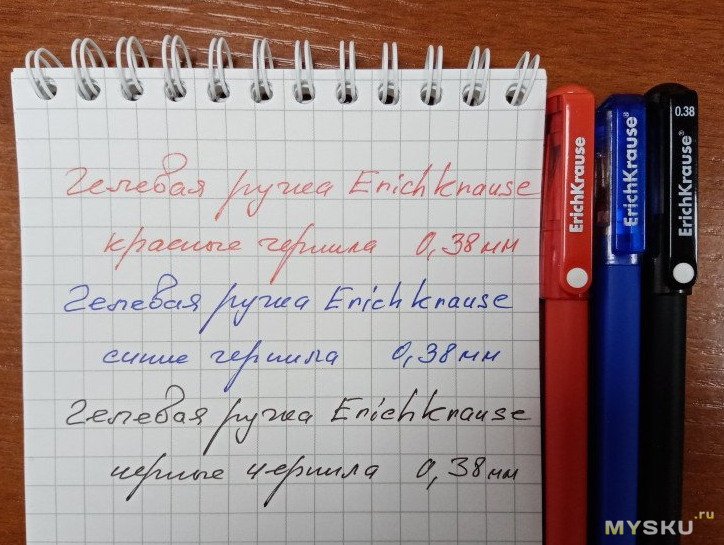 Гелевая ручка Erichkrause
красные чернила 0,38 мм
Гелевая ручка Erichkrause
синие чернила 0,38 мм
Гелевая ручка Erichkrause
черные чернила 0,38 мм
ErichKrause
ErichKrause®
0.38
ErichKrause®
MYSKU.ru